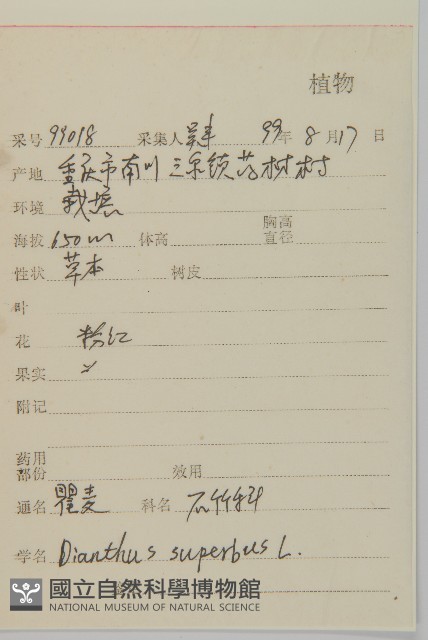 植物
采号 99018 采集人 吴丰 99年 8月17日
产地 重庆市南川三泉镇药树村
环境 栽培
海拔 650m 体高 胸高直径
性状 草本 树皮
叶
花 粉红
果实
附记
药用部份 效用
通名 瞿麦 科名 石竹科
学名 Dianthus superbus L.
國立自然科學博物館
NATIONAL MUSEUM OF NATURAL SCIENCE